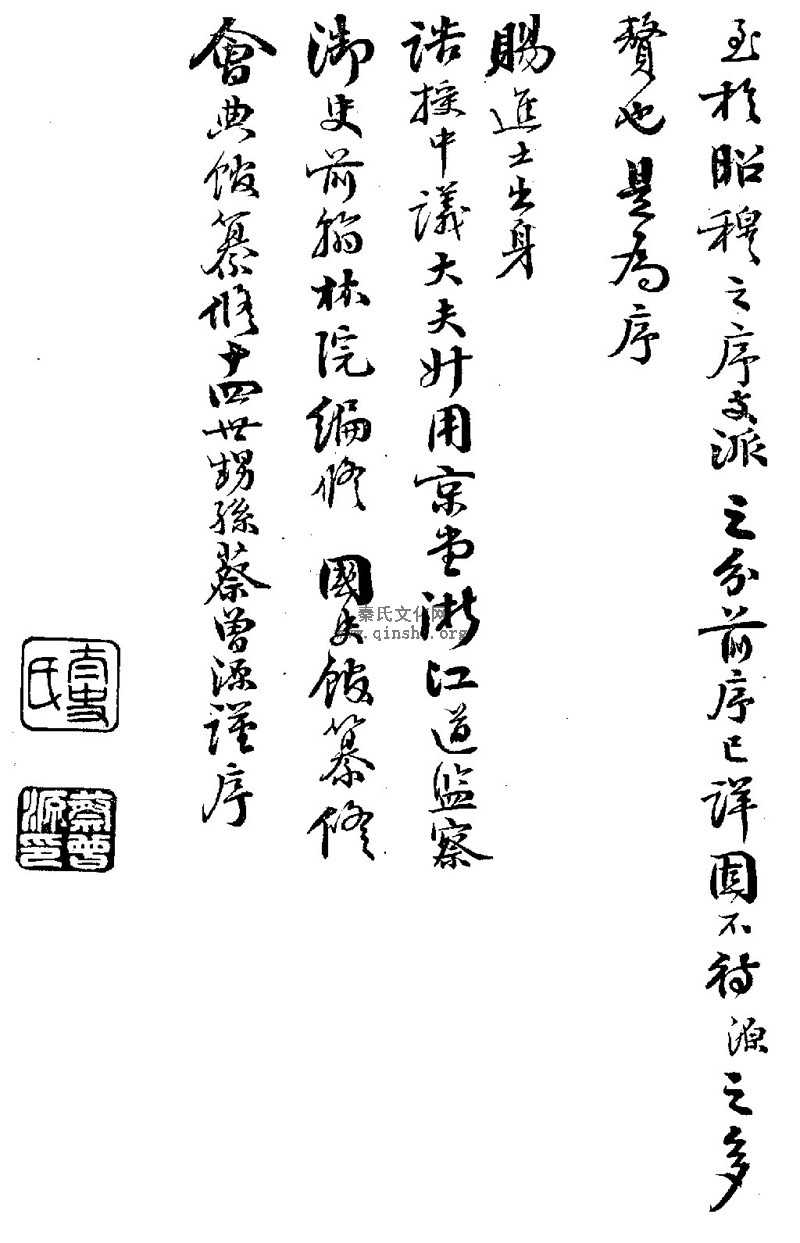 至於昭穆之序支派之分前序已詳固不待源之多
贅也是為序
賜進士出身
誥授中議大夫升用京堂浙江道監察
御史前翰林院編修 國史館纂修
會典館纂修十四世甥孫蔡曾源謹序
太史氏
蔡曾源印
秦氏文化网
www.qinshi.org